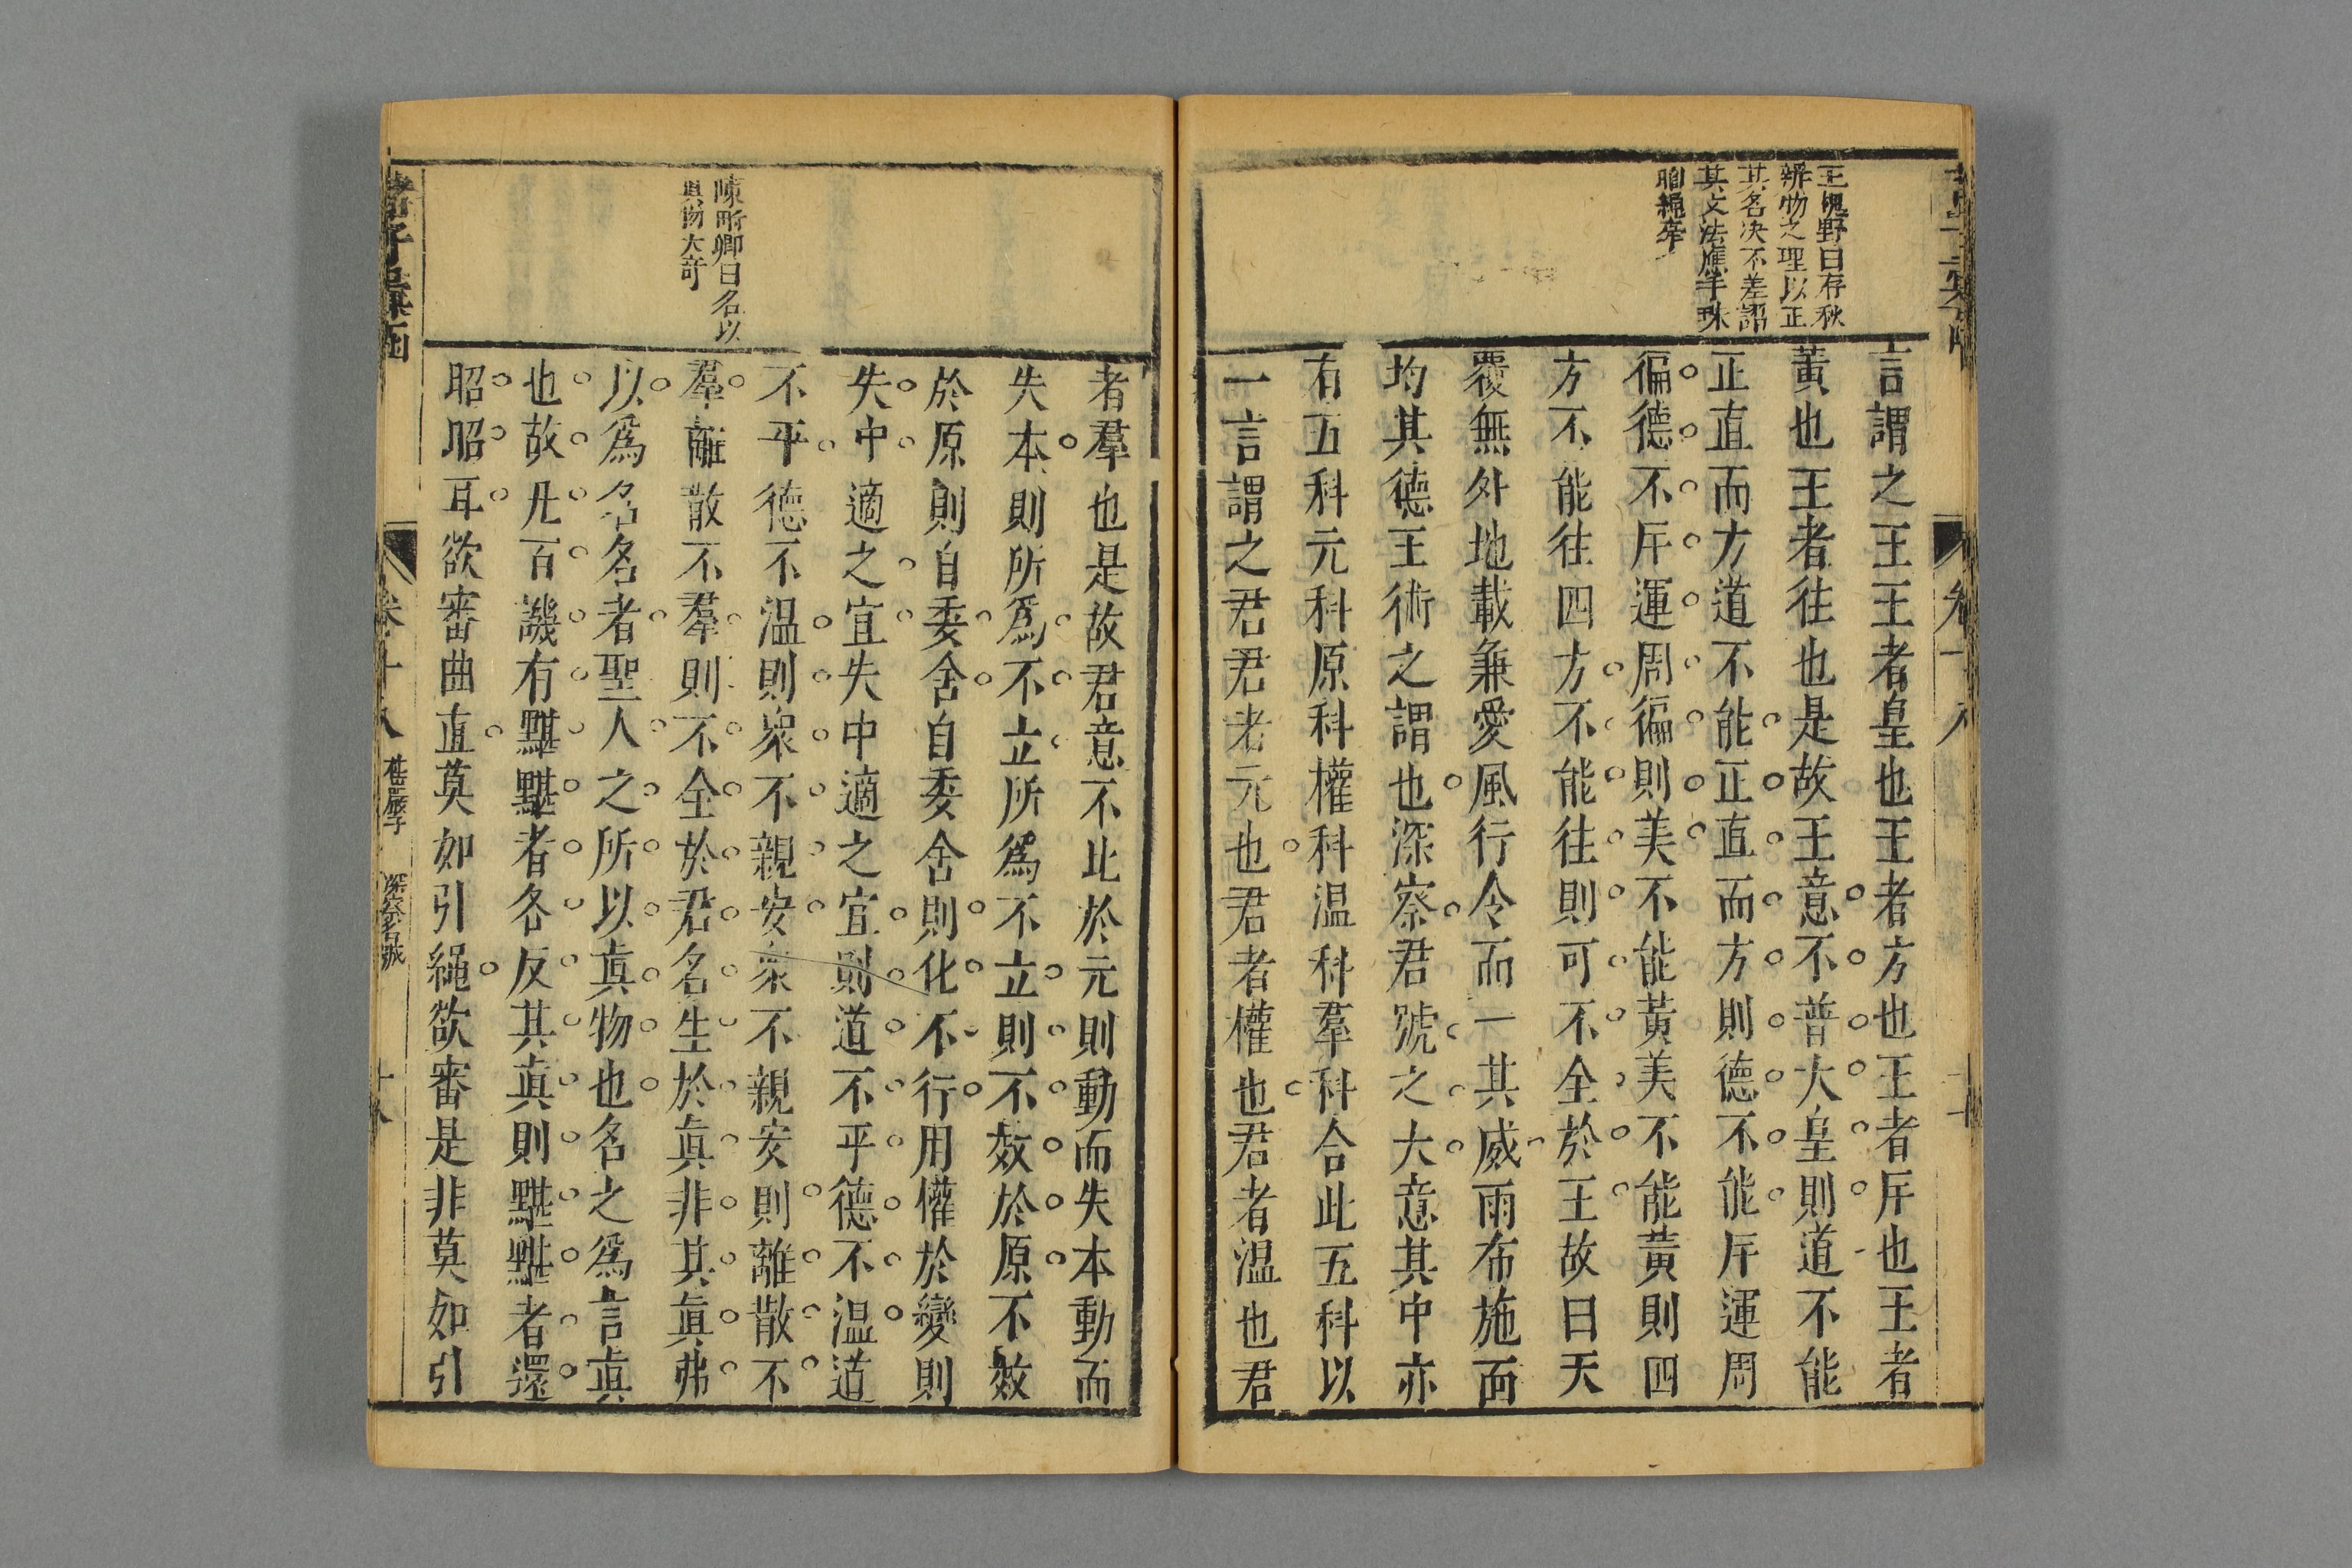 王鳳野曰存秋
辨物之理以正
其名决不差謬
其文法應手珠
聯繩牽
言謂之王王者皇也王者方也王者斥也王者
黃也王者往也是故王意不普大皇則道不能
正直而方道不能正直而方則德不能斥運周
徧德不斥運周徧則美不能黃美不能黃則四
方不能往四方不能往則可不全於王故曰天
覆無外地載兼愛風行令而一其威雨布施而
均其德王術之謂也深察君號之大意其中亦
有五科元科原科權科温科羣科合此五科以
一言謂之君君者元也君者權也君者温也君
陳所卿曰名以
眞物大奇
者羣也是故君意不比於元則動而失本動而
失本則所爲不立所爲不立則不效於原不效
於原則自委舍自委舍則化不行用權於變則
失中適之宜失中適之宜則道不平德不温道
不平德不温則衆不親安衆不親安則離散不
羣離散不羣則不全於君名生於眞非其眞弗
以爲名名者聖人之所以眞物也名之爲言眞
也故凡百譏有黮黮者各反其眞則黮黮者還
昭昭耳欲審曲直莫如引繩欲審是非莫如引
諸子彙函
卷十八
深察名號
十八